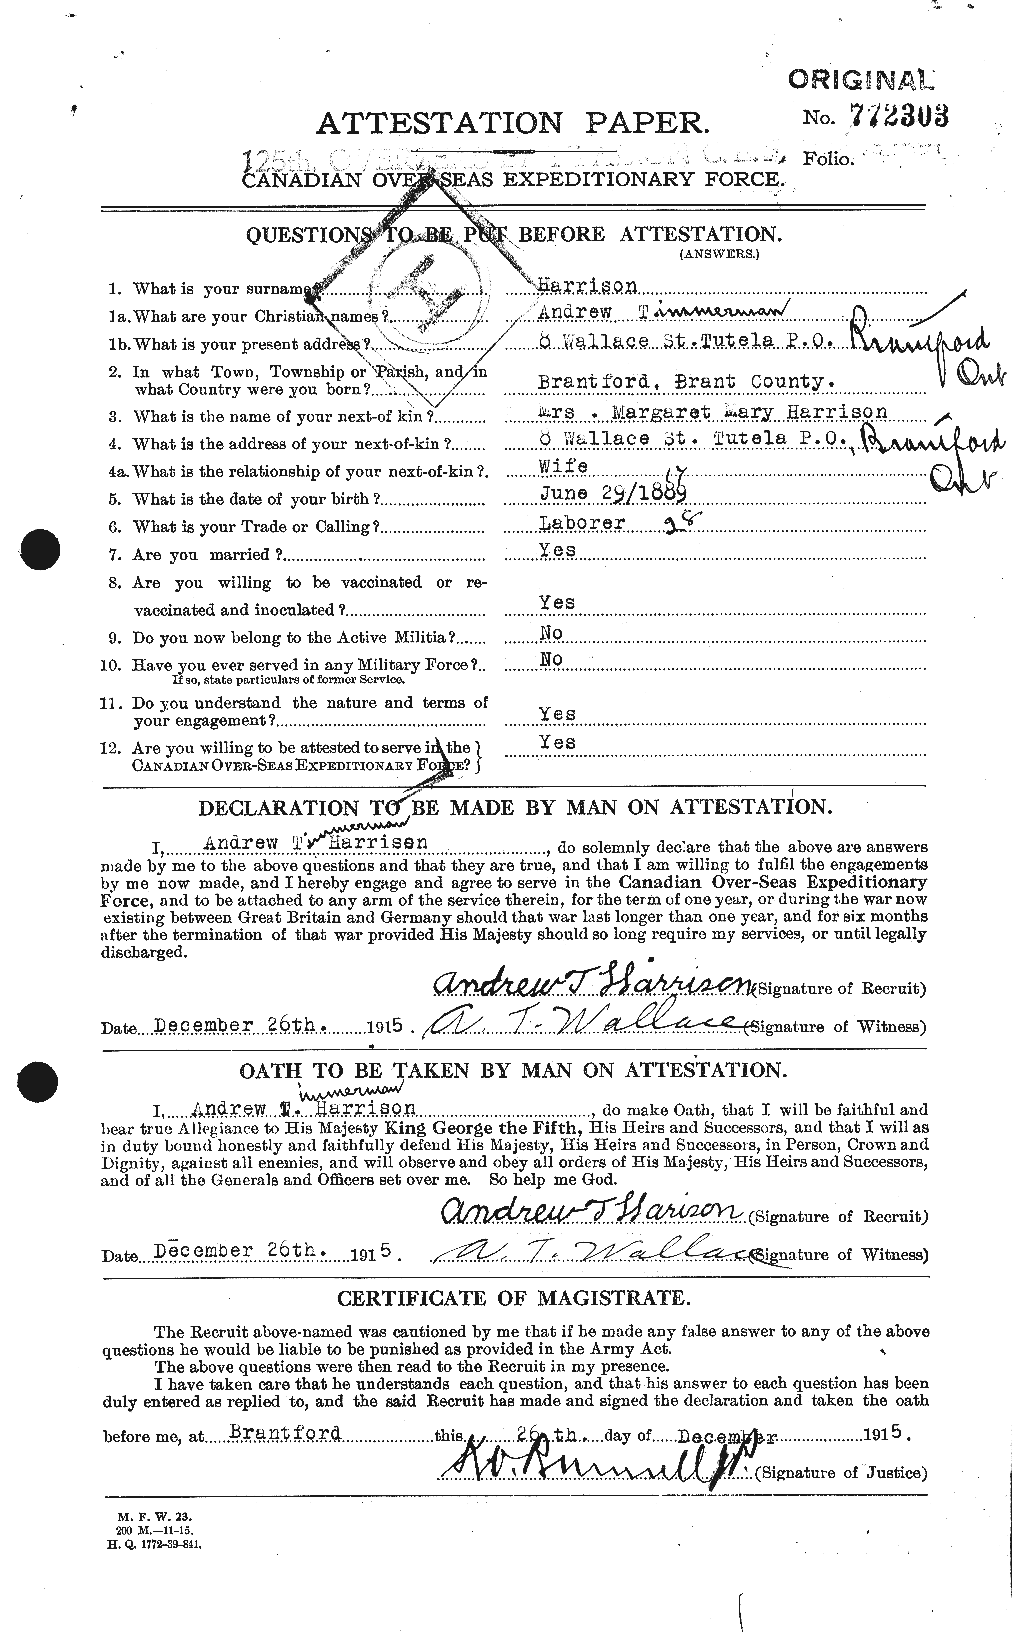 ORIGINAL
ATTESTATION PAPER.
No. 772303
125th,
Folio.
CANADIAN OVER-SEAS EXPEDITIONARY FORCE.
QUESTIONS TO BE PUT BEFORE ATTESTATION.
(ANSWERS.)
H
1. What is your surname? Harrison
1a. What are your Christian names? Andrew Timmerman
1b. What is your present address? 8 Wallace St. Tutela P.O. Brantford Ont
2. In what Town, Township or Parish, and in
what Country were you born? Brantford, Brant County.
3. What is the name of your next-of kin? Mrs. Margaret Mary Harrison
4. What is the address of your next-of-kin? 8 Wallace St. Tutela P.O., Brantford Ont
4a. What is the relationship of your next-of-kin? Wife
5. What is the date of your birth? June 29/188
6. What is your Trade or Calling? Laborer 28
7. Are you married? Yes
8. Are you willing to be vaccinated or re-
vaccinated and inoculated? Yes
9. Do you now belong to the Active Militia? No
10. Have you ever served in any Military Force? No
If so, state particulars of former Service.
11. Do you understand the nature and terms of
your engagement? Yes
12. Are you willing to be attested to serve in the Yes
CANADIAN OVER-SEAS EXPEDITIONARY FORCE?
DECLARATION TO BE MADE BY MAN ON ATTESTATION.
immerman
I, Andrew T. Harrison, do solemnly declare that the above are answers
made by me to the above questions and that they are true, and that I am willing to fulfil the engagements
by me now made, and I hereby engage and agree to serve in the Canadian Over-Seas Expeditionary
Force, and to be attached to any arm of the service therein, for the term of one year, or during the war now
existing between Great Britain and Germany should that war last longer than one year, and for six months
after the termination of that war provided His Majesty should so long require my services, or until legally
discharged.
Andrew T Harrison (Signature of Recruit)
Date December 26th. 1915. A. T. Wallace (Signature of Witness)
OATH TO BE TAKEN BY MAN ON ATTESTATION.
immerman
I, Andrew T. Harrison, do make Oath, that I will be faithful and
bear true Allegiance to His Majesty King George the Fifth, His Heirs and Successors, and that I will as
in duty bound honestly and faithfully defend His Majesty, His Heirs and Successors, in Person, Crown and
Dignity, against all enemies, and will observe and obey all orders of His Majesty, His Heirs and Successors,
and of all the Generals and Officers set over me. So help me God.
Andrew T Harison (Signature of Recruit)
Date December 26th. 1915. A. T. Wallace (Signature of Witness)
CERTIFICATE OF MAGISTRATE.
The Recruit above-named was cautioned by me that if he made any false answer to any of the above
questions he would be liable to be punished as provided in the Army Act.
The above questions were then read to the Recruit in my presence.
I have taken care that he understands each question, and that his answer to each question has been
duly entered as replied to, and the said Recruit has made and signed the declaration and taken the oath
before me, at Brantford this 26th. day of December 1915.
(Signature of Justice)
M. F. W. 23.
200 M.—11-15.
H. Q. 1772-39-841.